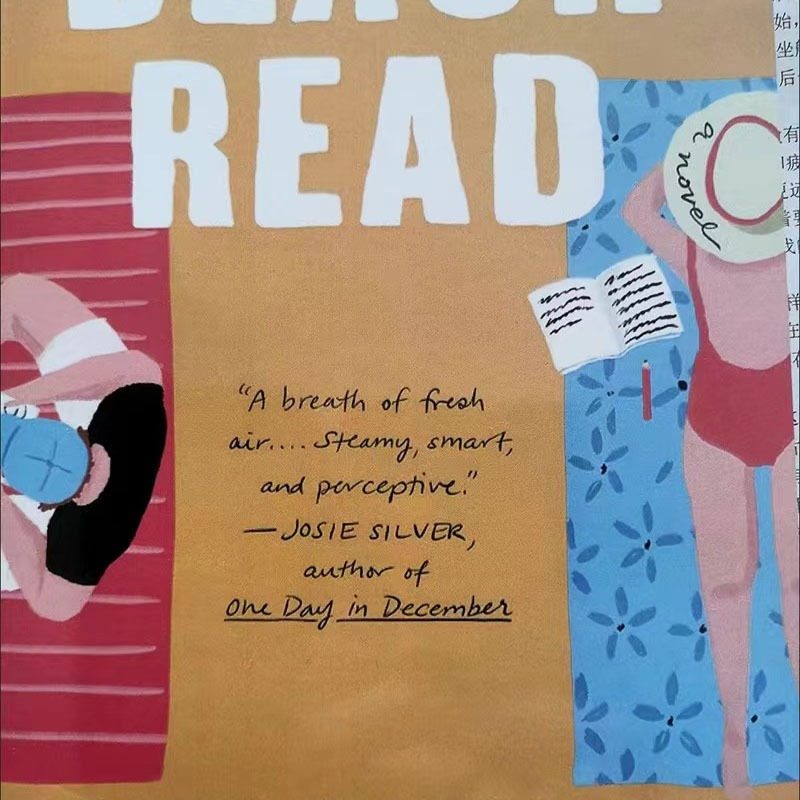 BEACH
READ
a novel
"A breath of fresh
air.... Steamy, smart,
and perceptive."
—JOSIE SILVER,
author of
One Day in December
始,
后
有